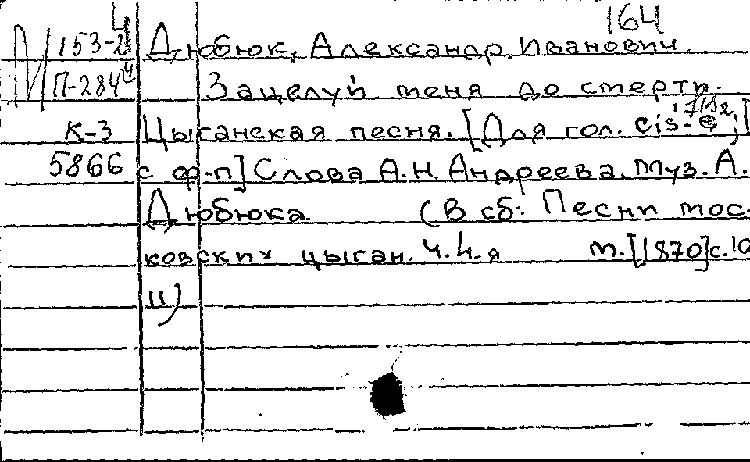 164
153-2 Дюбюк, Александр Иванович.
П-284 Зацелуй меня до смерти.
К-3 Цыганская песня. [Для гол. cis¹-
5866 с ф-п] Слова А.Н. Андреева. Муз. А.
Дюбюка (В сб: Песни мос-
ковских цыган. Ч. 4-я М. [1870] с. 10
11)